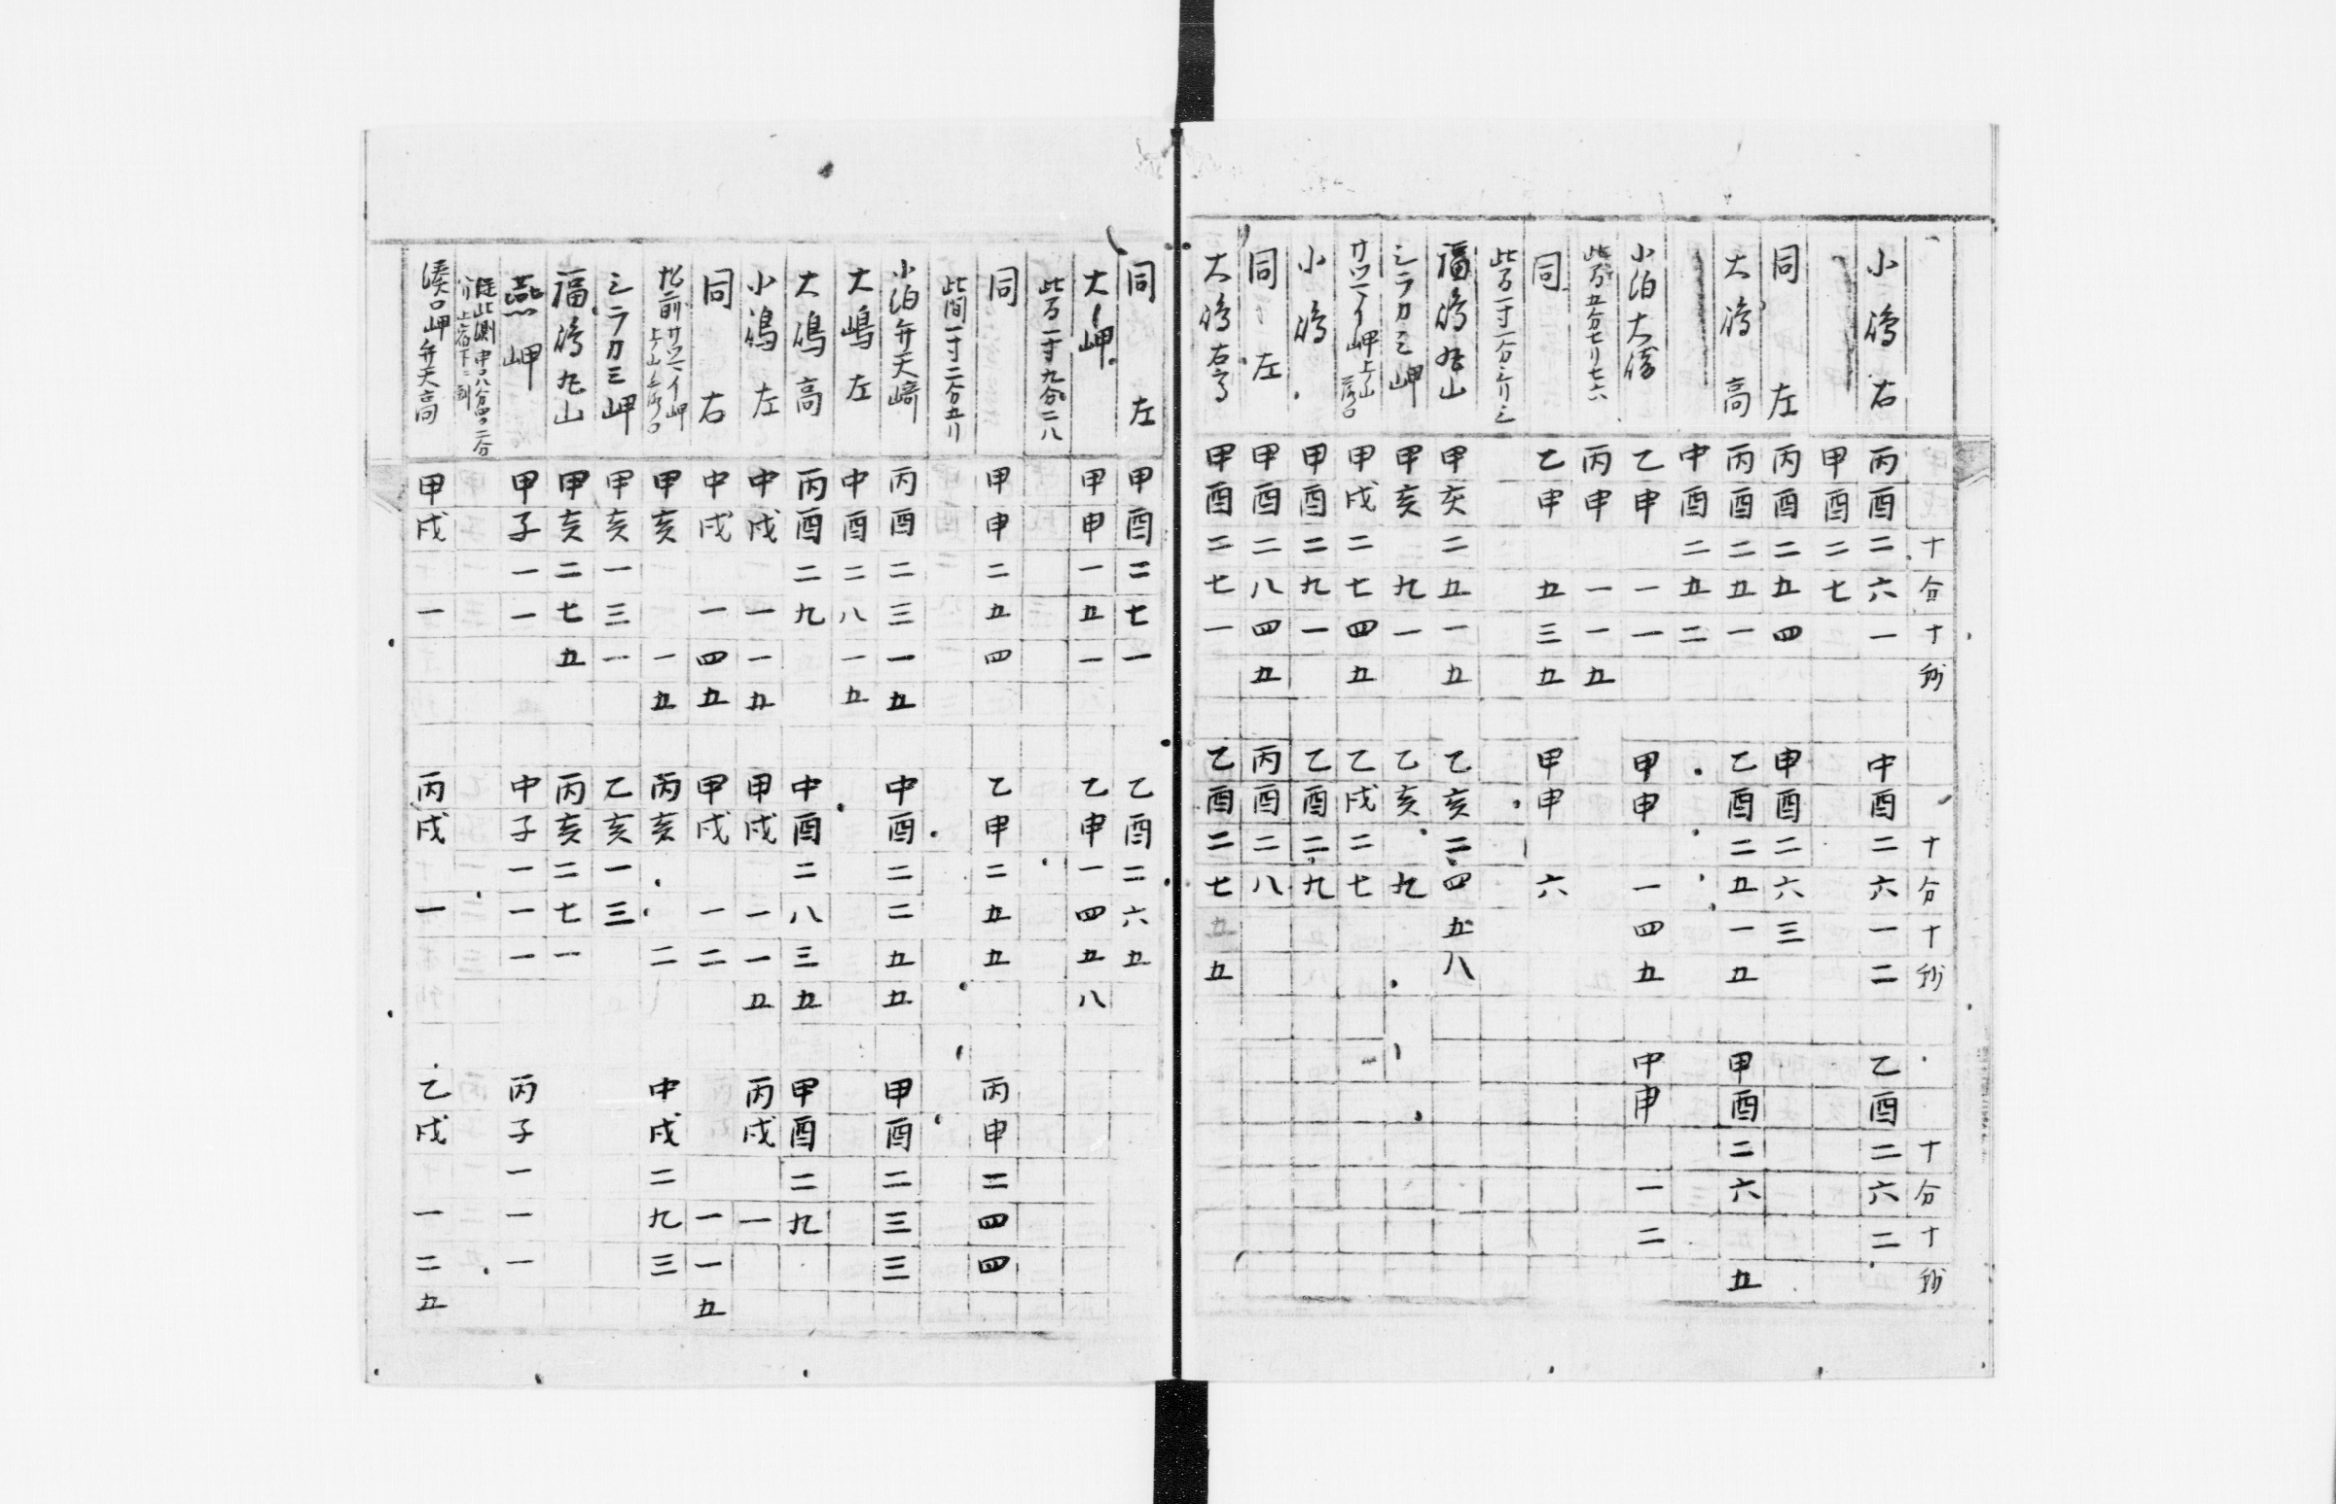 十分十秒 十分十秒 十分十秒
小嶋右 丙酉二六一 中酉二六一二 乙酉二六二
甲酉二七
同左 丙酉二五四 申酉二六三
大嶋高 丙酉二五一 乙酉二五一五 甲酉二六五
中酉二五二
小泊大 乙申一一 甲申一四五 中申一二
此間五分七リ七六 丙申一一五
同 乙申五三五 甲申六
此間一寸一分三リ三
福嶋丸山 甲亥二五一五 乙亥二四五八
シラカミ岬 甲亥九一 乙亥九
岬上山 甲戌二七四五 乙戌二七
小嶋 甲酉二九一 乙酉二九
同左 甲酉二八四五 丙酉二八
大嶋右高 甲酉二七一 乙酉二七五五
同左 甲酉二七一 乙酉二六五
大岬 甲申一五一 乙申一四五八
此間一寸九分二八
同 甲申二五四 乙申二五五 丙申二四四
此間一寸二分五リ
小泊弁天崎 丙酉二三一五 中酉二二五五 甲酉二三三
大嶋左 中酉二八一五
大嶋高 丙酉二九 中酉二八三五 甲酉二九
小嶋左 中戌一一五 甲戌一一五 丙戌一
同右 中戌一四五 甲戌一二 一一五
岬 甲亥一五 丙亥二 中戌二九三
シラカミ岬 甲亥一三一 乙亥一三
福嶋丸山 甲亥二七五 丙亥二七一
燕岬 甲子一一 中子一一 丙子一一一
従此測
湊口岬弁天高 甲戌一 丙戌一 乙戌一二五